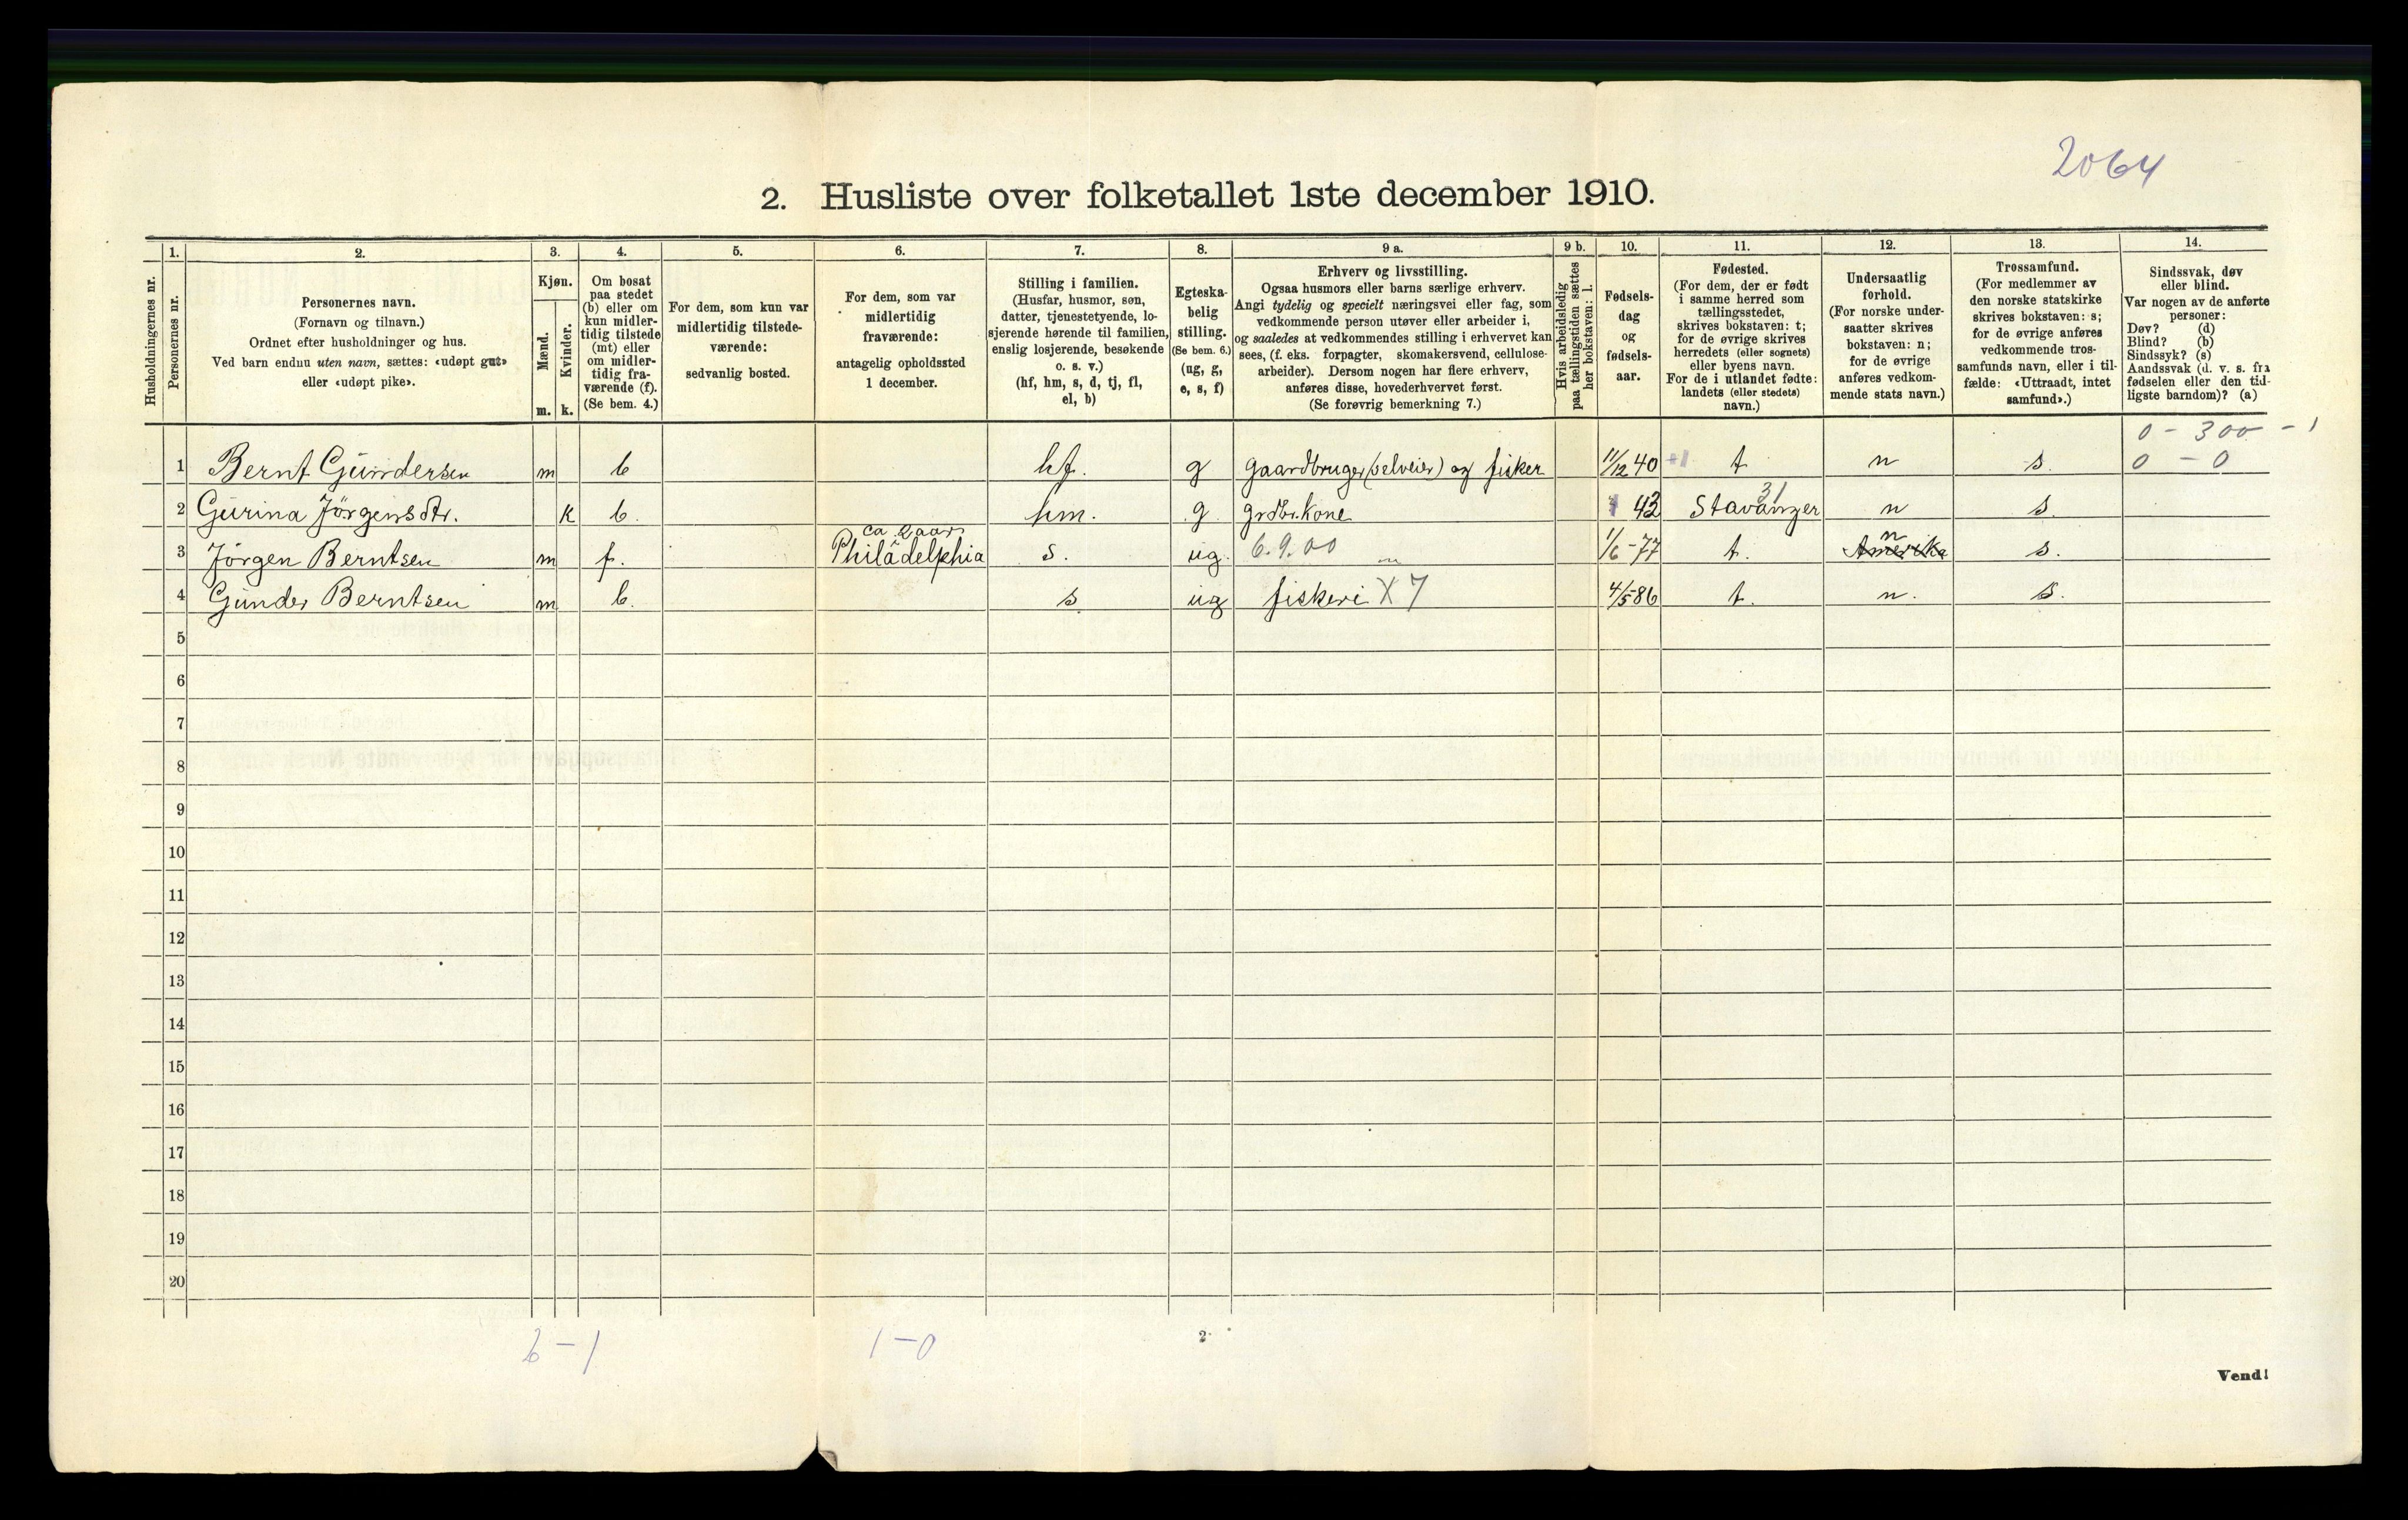 2064
2. Husliste over folketallet 1ste december 1910.
Husholdningernes nr.
1.
Personernes nr.
2.
Personernes navn.
(Fornavn og tilnavn.)
Ordnet efter husholdninger og hus.
Ved barn endnu uten navn, sættes: «udøpt gut»
eller «udøpt pike».
3.
Kjøn.
Mænd.
Kvinder.
m.
k.
4.
Om bosat
paa stedet
(b) eller om
kun midler-
tidig tilstede
(mt) eller
om midler-
tidig fra-
værende (f).
(Se bem. 4.)
5.
For dem, som kun var
midlertidig tilstede-
værende:
sedvanlig bosted.
6.
For dem, som var
midlertidig
fraværende:
antagelig opholdssted
1 december.
7.
Stilling i familien.
(Husfar, husmor, søn,
datter, tjenestetyende, lo-
sjerende hørende til familien,
enslig losjerende, besøkende
o. s. v.)
(hf, hm, s, d, tj, fl,
el, b)
8.
Egteska-
belig
stilling.
(Se bem. 6.)
(ug, g,
e, s, f)
9 a.
Erhverv og livsstilling.
Ogsaa husmors eller barns særlige erhverv.
Angi tydelig og specielt næringsvei eller fag, som
vedkommende person utøver eller arbeider i,
og saaledes at vedkommendes stilling i erhvervet kan
sees, (f. eks. forpagter, skomakersvend, cellulose-
arbeider). Dersom nogen har flere erhverv,
anføres disse, hovederhvervet først.
(Se forøvrig bemerkning 7.)
9 b.
Hvis arbeidsledig
paa tællingstiden sættes
her bokstaven: l.
10.
Fødsels-
dag
og
fødsels-
aar.
11.
Fødested.
(For dem, der er født
i samme herred som
tællingsstedet,
skrives bokstaven: t;
for de øvrige skrives
herredets (eller sognets)
eller byens navn.
For de i utlandet fødte:
landets (eller stedets)
navn.)
12.
Undersaatlig
forhold.
(For norske under-
saatter skrives
bokstaven: n;
for de øvrige
anføres vedkom-
mende stats navn.)
13.
Trossamfund.
(For medlemmer av
den norske statskirke
skrives bokstaven: s;
for de øvrige anføres
vedkommende tros-
samfunds navn, eller i til-
fælde: «Uttraadt, intet
samfund».)
14.
Sindssvak, døv
eller blind.
Var nogen av de anførte
personer:
Døv? (d)
Blind? (b)
Sindssyk? (s)
Aandssvak (d. v. s. fra
fødselen eller den tid-
ligste barndom)? (a)
0 - 300 - 1
1 Bernt Gundersen m b hf. g gaardbruger (selveier) og fisker 11/12 40 t n s. 0 - 0
31
2 Gurina Jörgensdtr. k b. hm. g. grdbr.kone 42 Stavanger n s.
ca 2 aar n
3 Jörgen Berntsen m f. Philadelphia s. ug. 6.9.00 1/6-77 t. Amerika s.
4 Gunder Berntsen m b. s ug fiskeri X 7 4/5 86 t. n. s.
5
6
7
8
9
10
11
12
13
14
15
16
17
18
19
20
2 - 1
1 - 0
2
Vend!